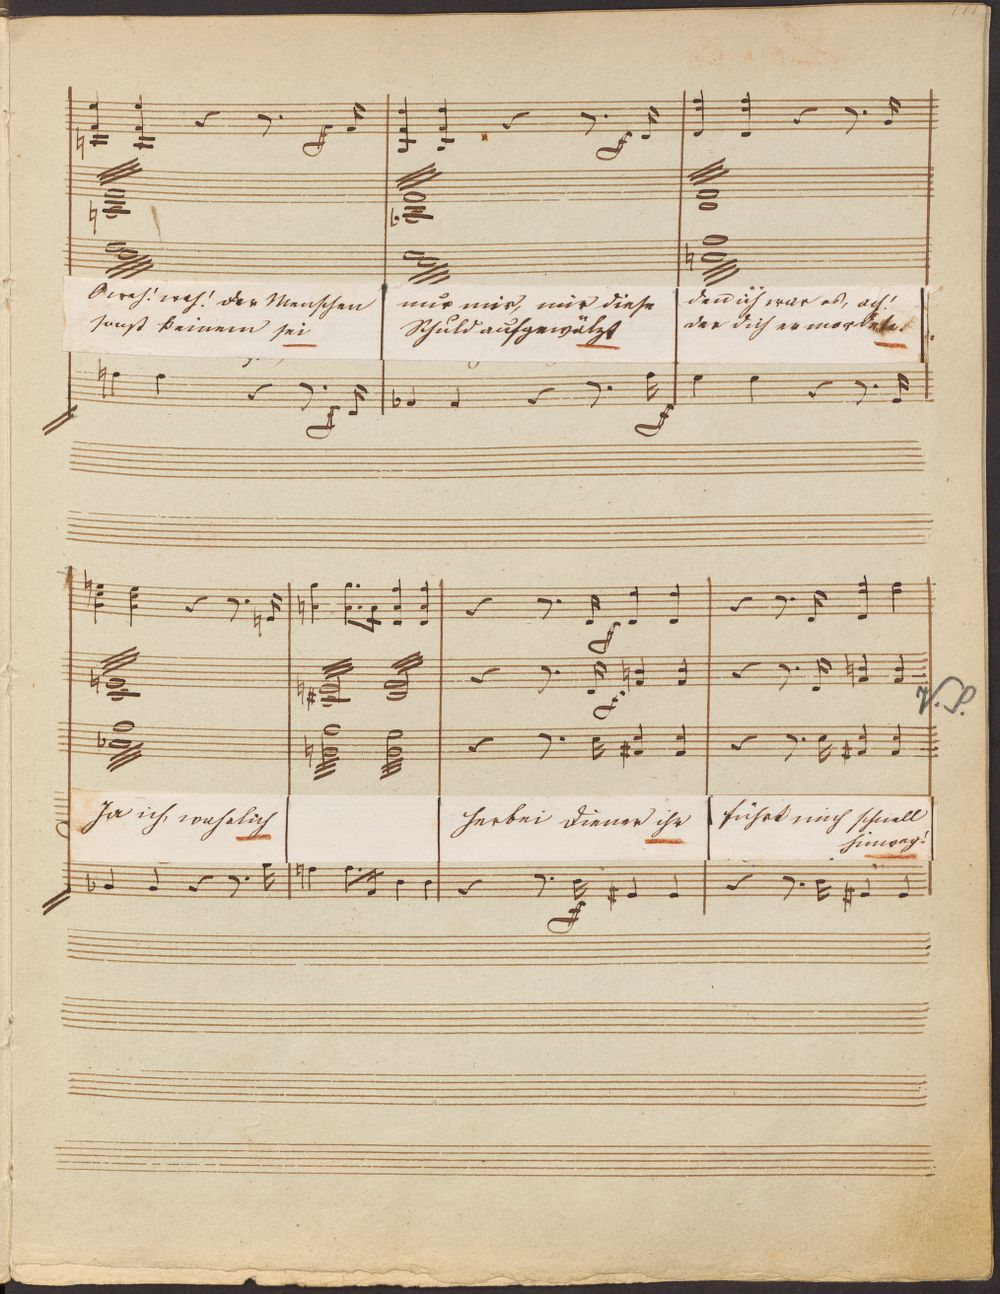 O weh! weh! der Menschen
sonst keinem sei
nur mir, mir diese
Schuld aufgewälzt
denn ich war es, ach!
der dich ermordete.
Ja ich, wahrlich
herbei Diener ihr
führt mich schnell
hinweg!
V.S.